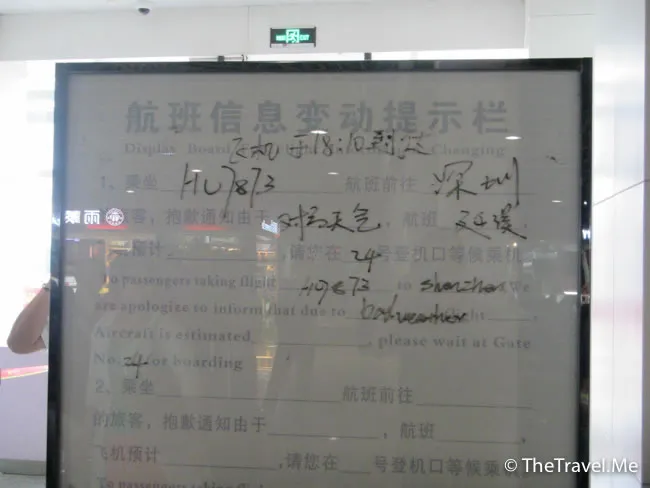 EXIT
航班信息变动提示栏
Display Board Changing
飞机于18:10到达
1、乘坐 HU7873 航班前往 深圳
旅客，抱歉通知由于 天气，航班 延误
预计 ,请您在 24 号登机口等候乘机
To passengers taking flight to shenzhen We
are apologize to inform that due to bad weather flight ,
Aircraft is estimated , please wait at Gate
No. 24 for boarding
2、乘坐 航班前往
的旅客，抱歉通知由于 ，航班 ,
飞机预计 ,请您在 号登机口等候乘机
To passengers taking flight
© TheTravel.Me